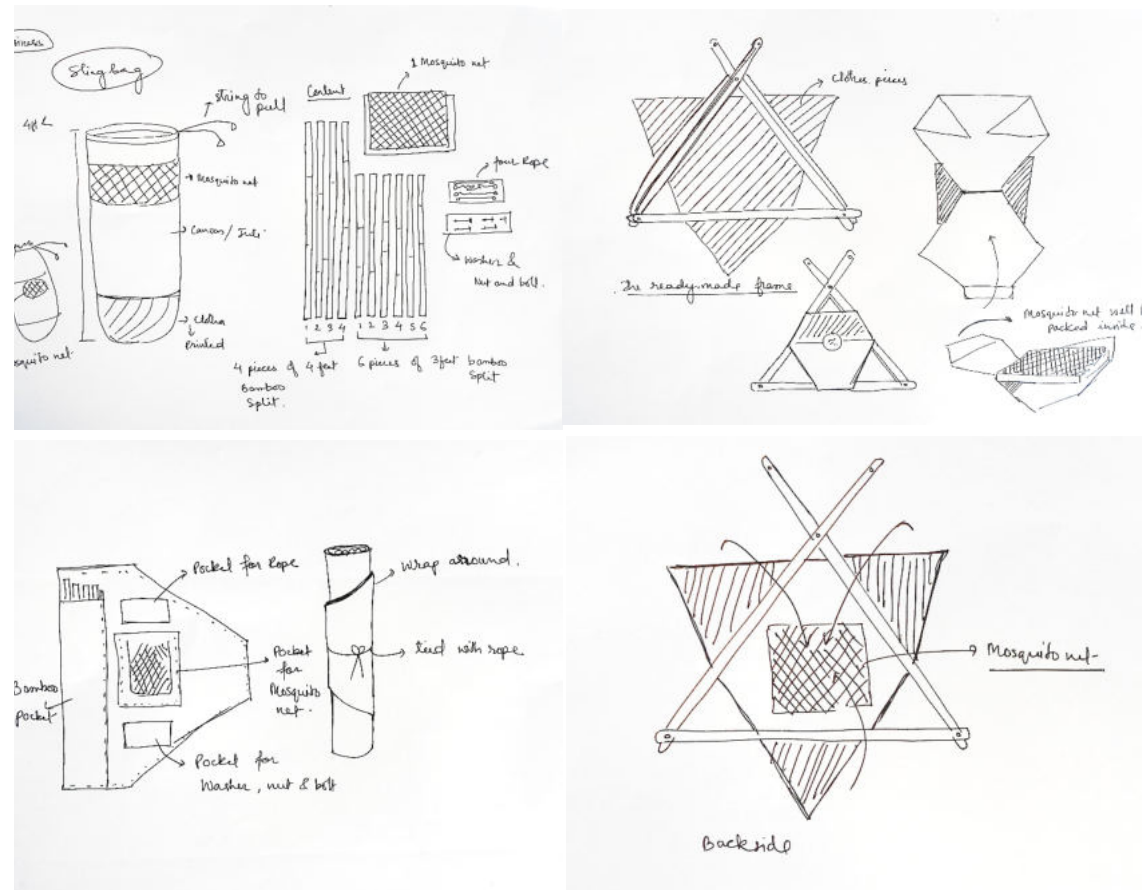 Sling bag
string to
pull
Mosquito net
Canvas / Jute
Cloths
Printed
Content
1 Mosquito net
four Rope
Washer &
Nut and bolt.
1 2 3 4
1 2 3 4 5 6
4 pieces of 4 feet
Bamboo
Split.
6 pieces of 3 feet bamboo
Split
Clothes pieces
The ready-made frame
Mosquito net will
packed inside.
Pocket for Rope
Bamboo
Pocket
Pocket
for
Mosquito
net.
Pocket for
Washer, nut & bolt
wrap around.
tied with rope
Mosquito net
Backside